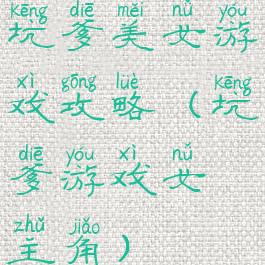 kēng diē měi nǚ yóu
坑爹美女游
xì gōng lüè kēng
戏攻略（坑
diē yóu xì nǚ
爹游戏女
zhǔ jiǎo
主角）